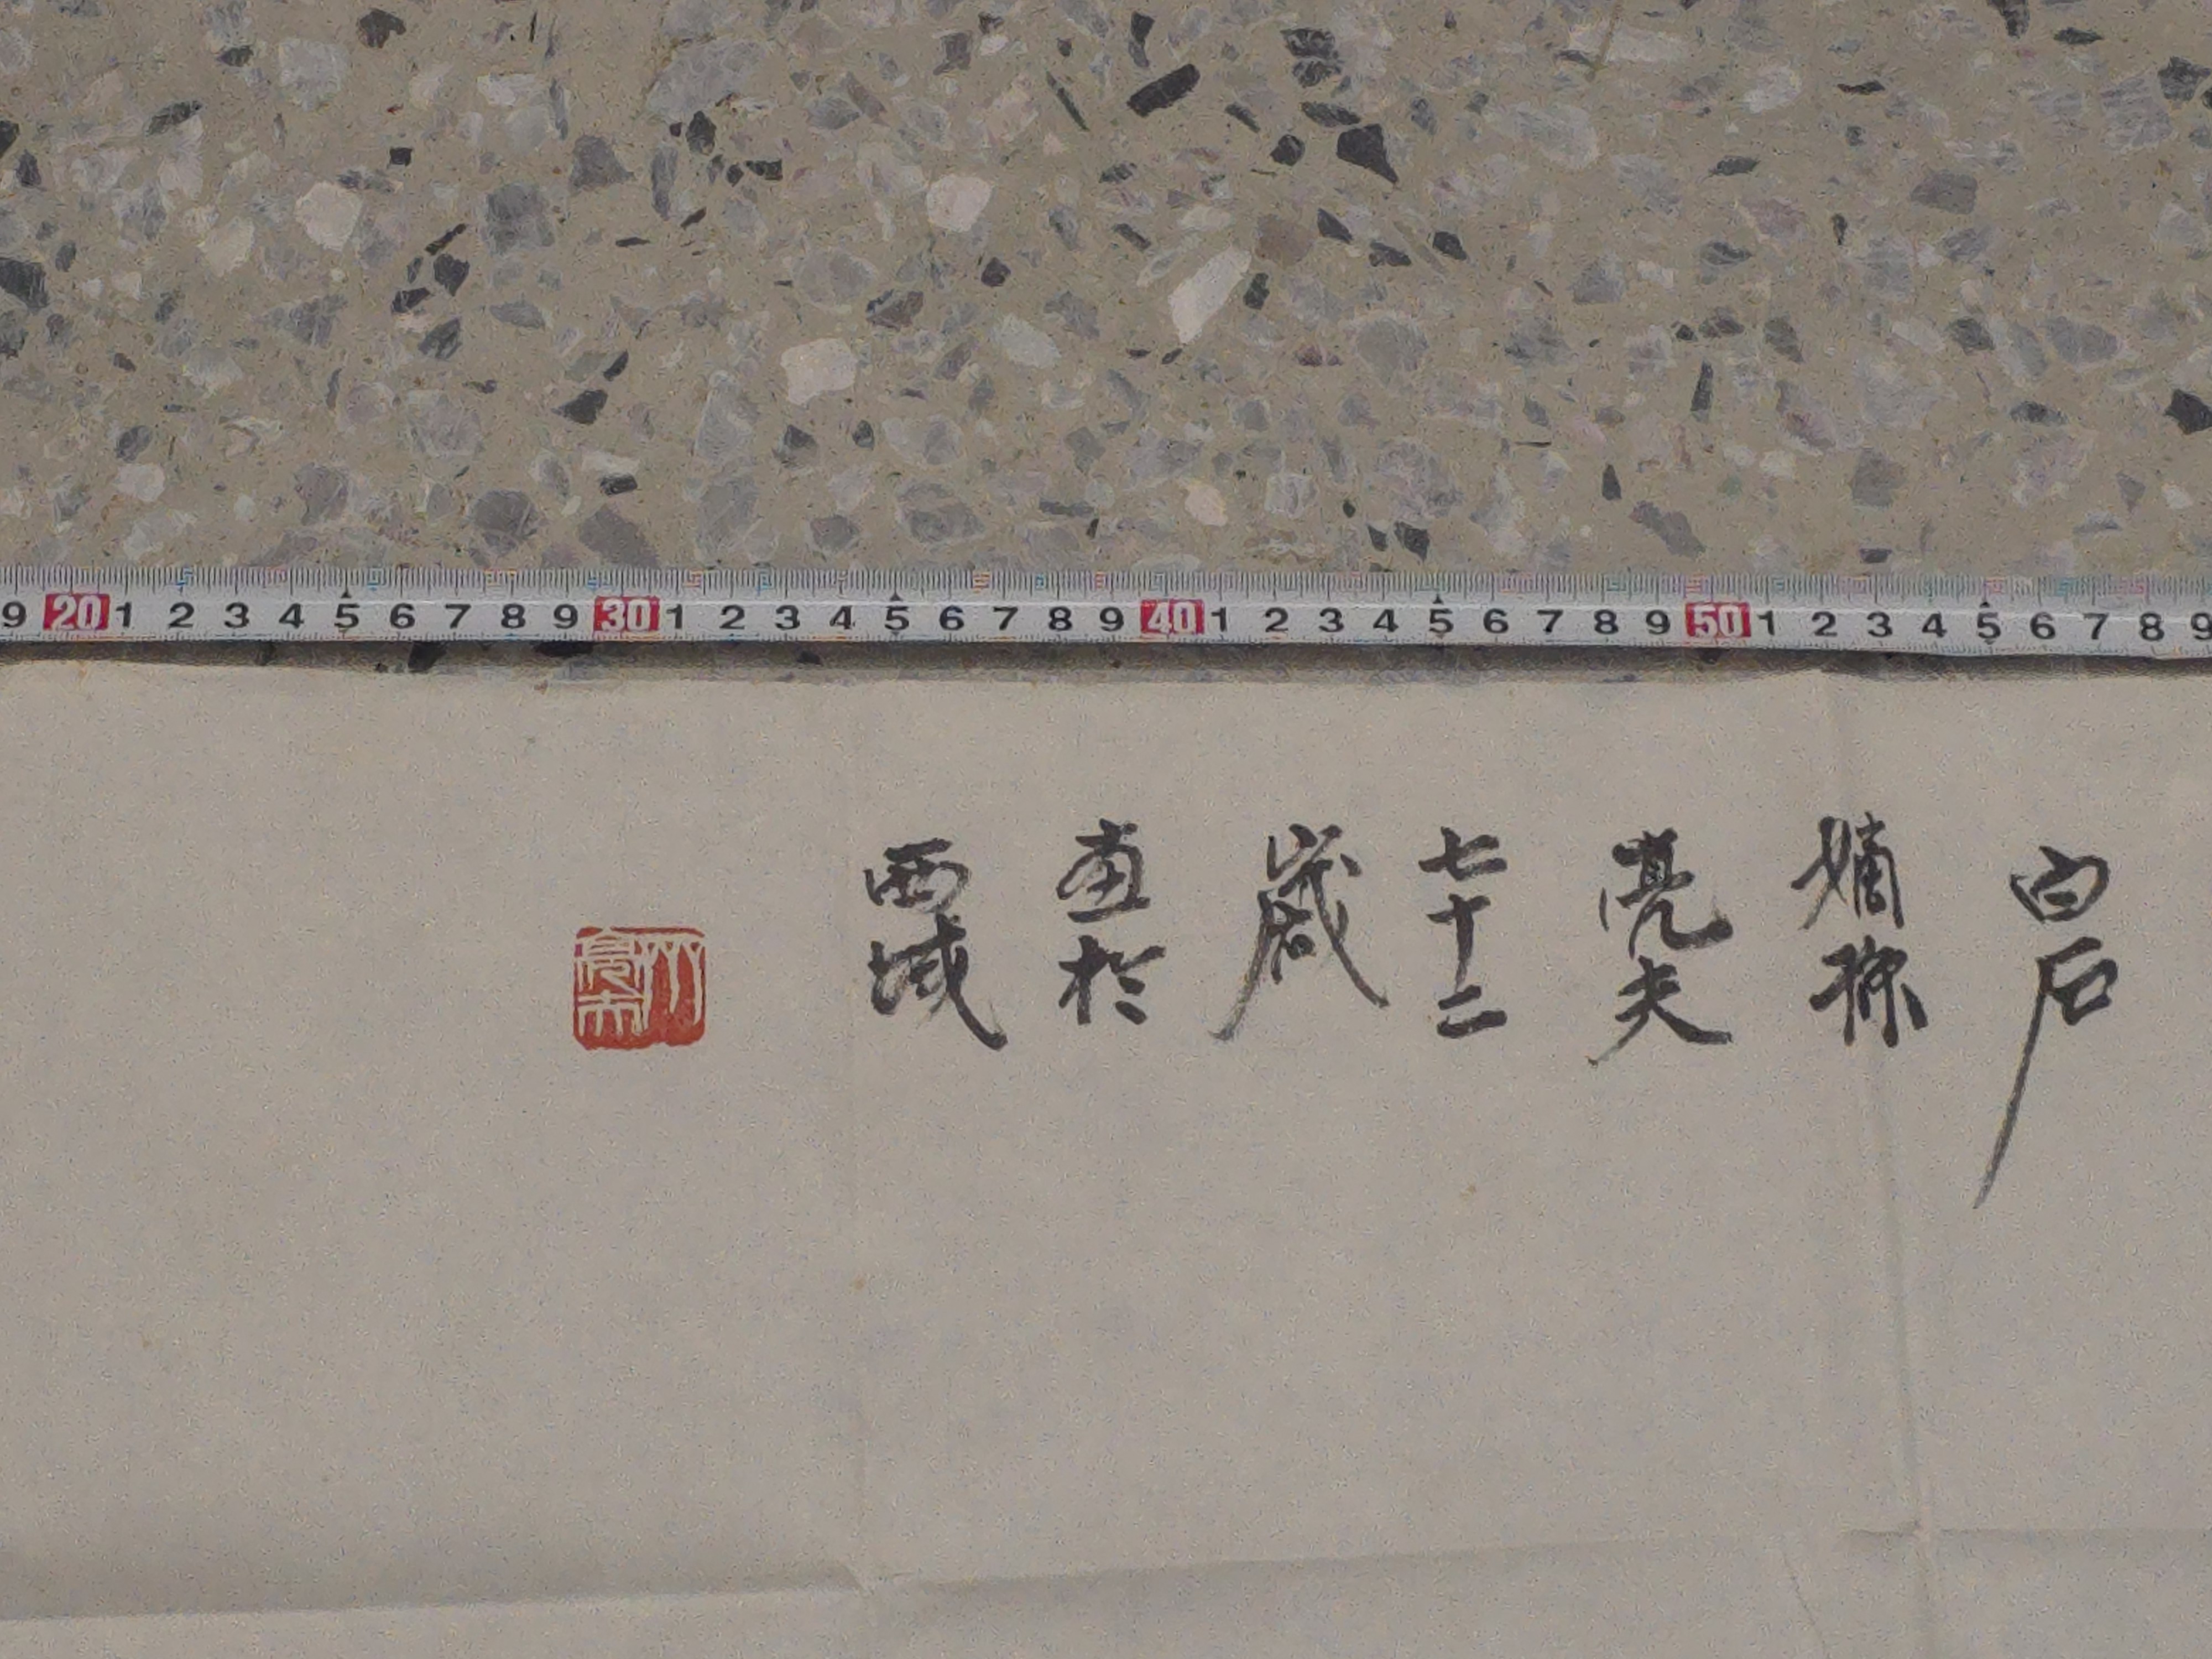 9 20 1 2 3 4 5 6 7 8 9 30 1 2 3 4 5 6 7 8 9 40 1 2 3 4 5 6 7 8 9 50 1 2 3 4 5 6 7 8 9
白石
嫡孫
亮夫
七十二
歲
畫於
西域